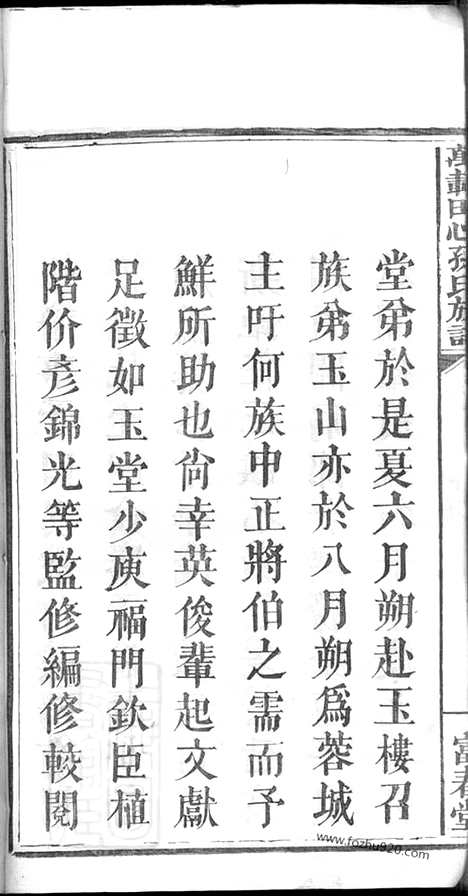 萬載田心孫氏族譜
富春堂
堂弟於是夏六月朔赴玉樓召
族弟玉山亦於八月朔爲蓉城
主吁何族中正將伯之需而予
鮮所助也尙幸英俊輩起文獻
足徵如玉堂少庚福門欽臣植
階价彥錦光等監修編修較閱
www.fozhu920.com